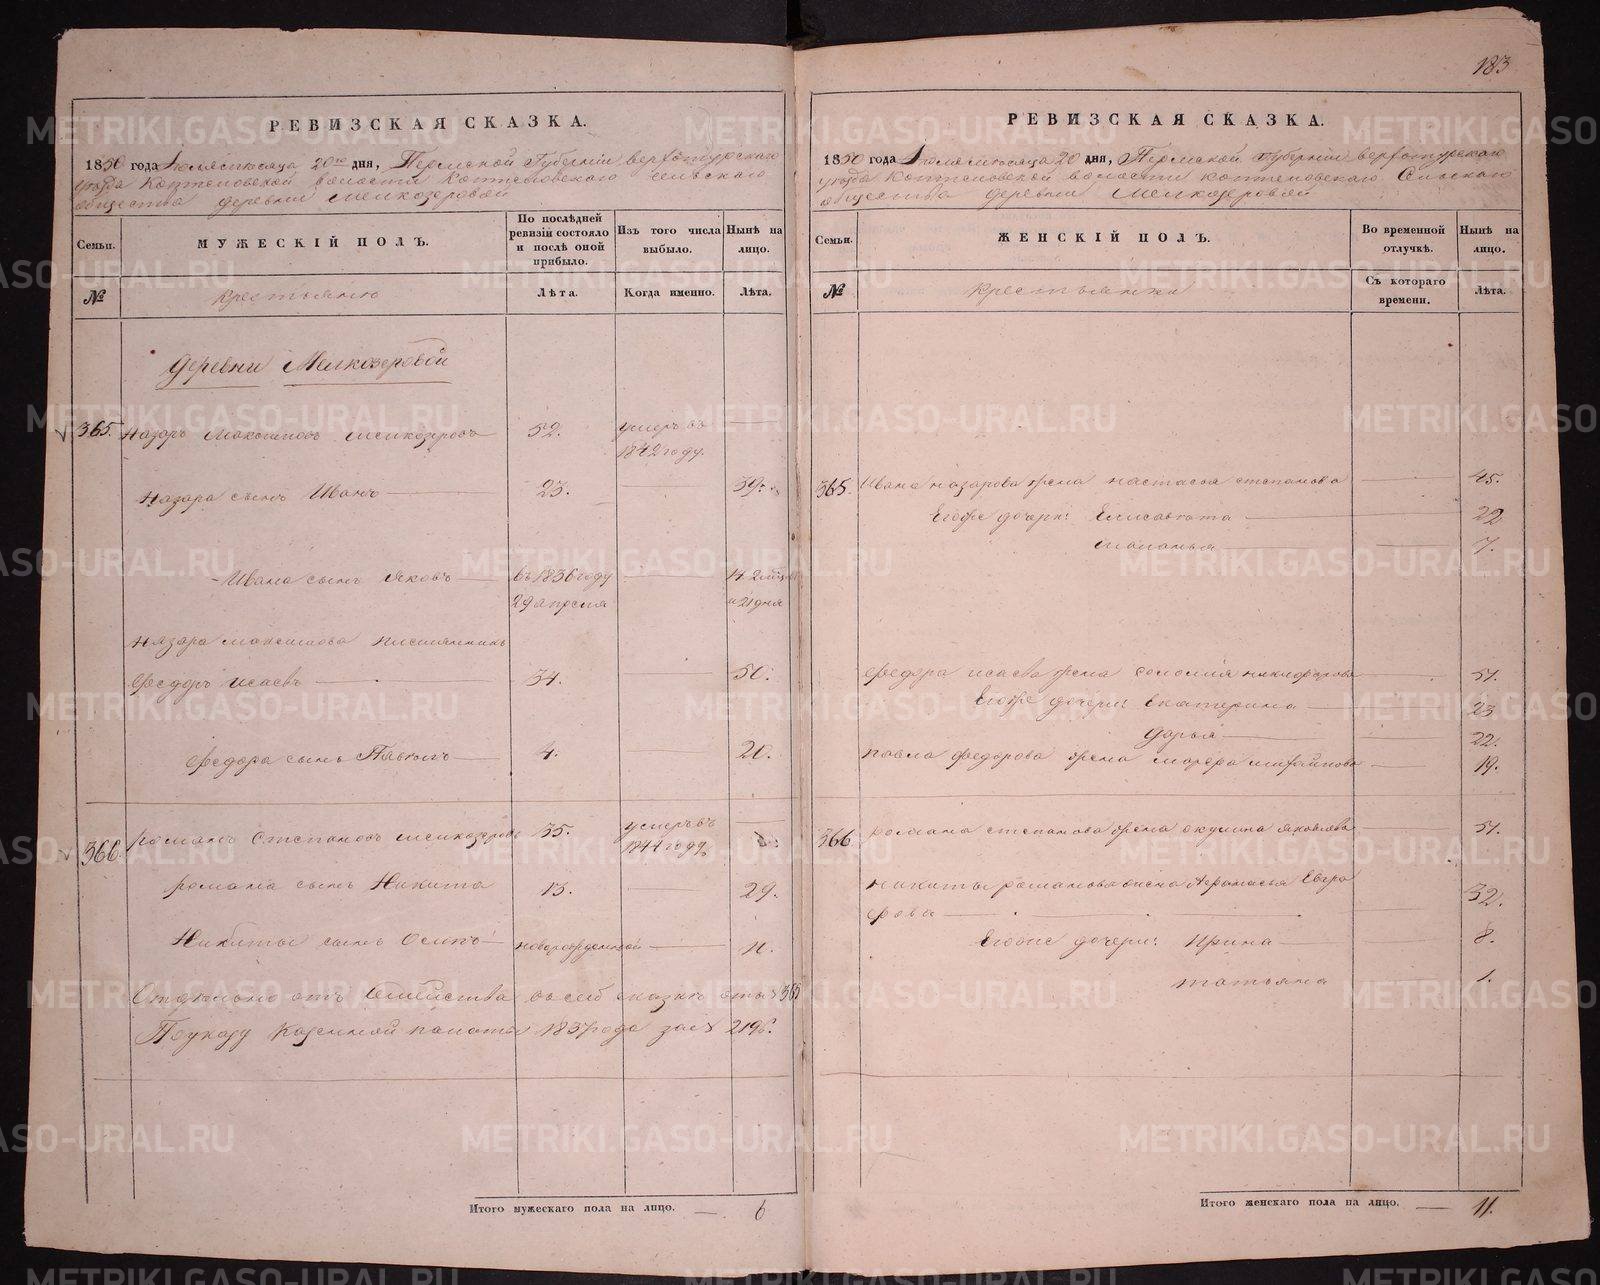 183
РЕВИЗСКАЯ СКАЗКА.
1850 года Іюля мѣсяца 20го дня, Пермской Губерніи верхотурскаго
уѣзда Коптеловской волости Коптеловскаго сельскаго
общества деревни Мелкозеровой
Семьи.
МУЖЕСКІЙ ПОЛЪ.
По послѣдней ревизіи состояло и послѣ оной прибыло.
Изъ того числа выбыло.
Нынѣ на лицо.
№
крестьяне
Лѣта.
Когда именно.
Лѣта.
Деревни Мелкозеровой
365. Назаръ Максимовъ Мелкозеровъ 52. умеръ въ
1842 году.
Назара сынъ Иванъ 23. 39.
Ивана сынъ Яковъ въ 1836 году 14. 2 мѣсяца
29 апреля и 21 дня
Назара Максимова племянникъ
Федоръ Исаевъ 34. 50.
Федора сынъ Павелъ 4. 20.
366. Романъ Степановъ Мелкозеровъ 35. умеръ въ
1844 году
Романа сынъ Никита 13. 29.
Никиты сынъ Осипъ новорожденной 11.
Отдѣльно отъ семейства въ сей сказкѣ 365
По указу Казенной палаты 1837 года за № 2196.
Итого мужескаго пола на лицо. — 6
РЕВИЗСКАЯ СКАЗКА.
1850 года Іюля мѣсяца 20 дня, Пермской губерніи верхотурскаго
уѣзда Коптеловской волости Коптеловскаго Сельскаго
общества деревни Мелкозеровой
Семьи.
ЖЕНСКІЙ ПОЛЪ.
Во временной отлучкѣ.
Нынѣ на лицо.
№
крестьянки
Съ котораго времени.
Лѣта.
365. Ивана Назарова жена Настасья Степанова 45.
Егоже дочери: Елисавета 22
Маланья 7.
Федора Исаева жена Соломія Никифорова 51.
Егоже дочери: Екатерина 23
Дарья 22.
Павла Федорова жена 19.
366 Романа Степанова жена Окулина Яковлева 51.
Никиты Романова жена Афанасья Евгра
фова 32.
Егоже дочери: Ирина 8.
Татьяна 1.
Итого женскаго пола на лицо. — 11.
METRIKI.GASO-URAL.RU